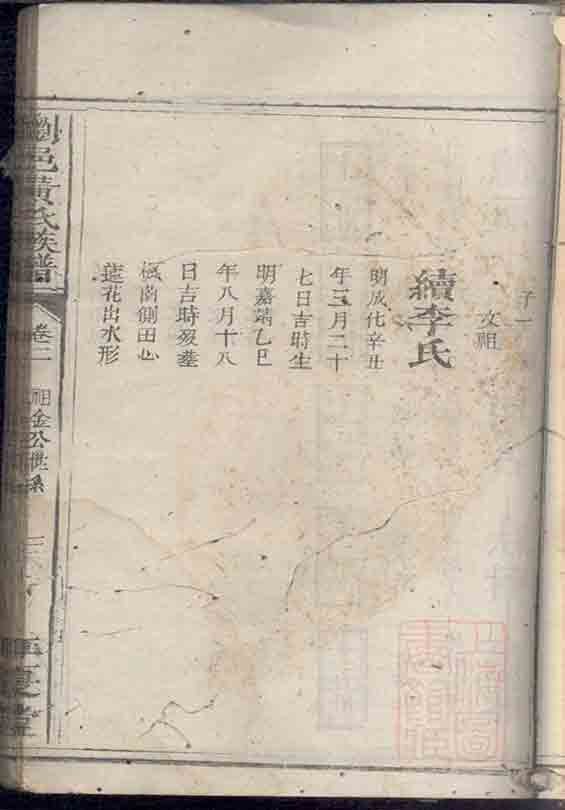 子一
文祖
續李氏
明成化辛丑
年三月二十
七日吉時生
明嘉靖乙巳
年八月十八
日吉時歿塟
楓樹側田心
蓮花出水形
瀏邑黃氏族譜
卷二
祖金公世系